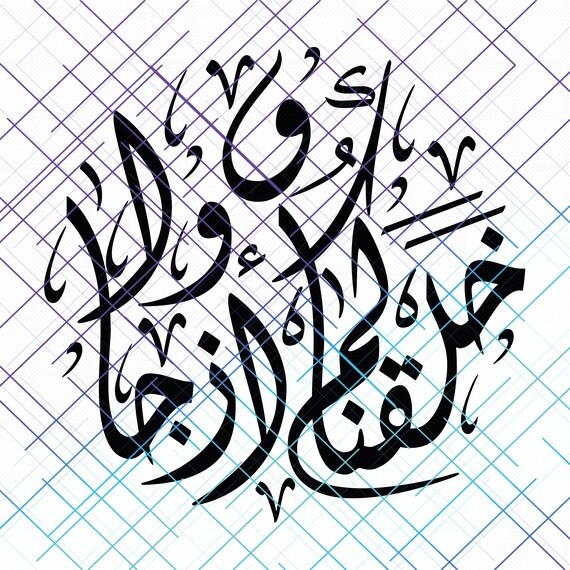 وخلقناكم أزواجا